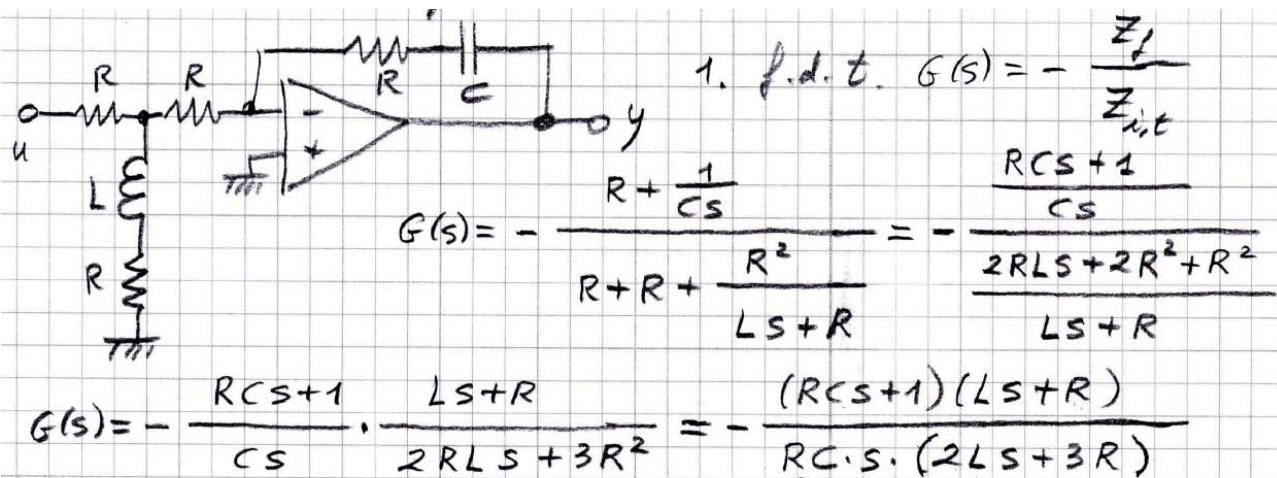 R R R C
u - + y
L
R
1. f.d.t. G(s) = - Z_f / Z_{i,t}
G(s) = - (R + 1/(Cs)) / (R + R + R²/(Ls + R)) = - ((RCs + 1)/(Cs)) / ((2RLs + 2R² + R²)/(Ls + R))
G(s) = - (RCs+1)/(Cs) · (Ls+R)/(2RLs + 3R²) = - ((RCs+1)(Ls+R))/(RC·s·(2Ls+3R))